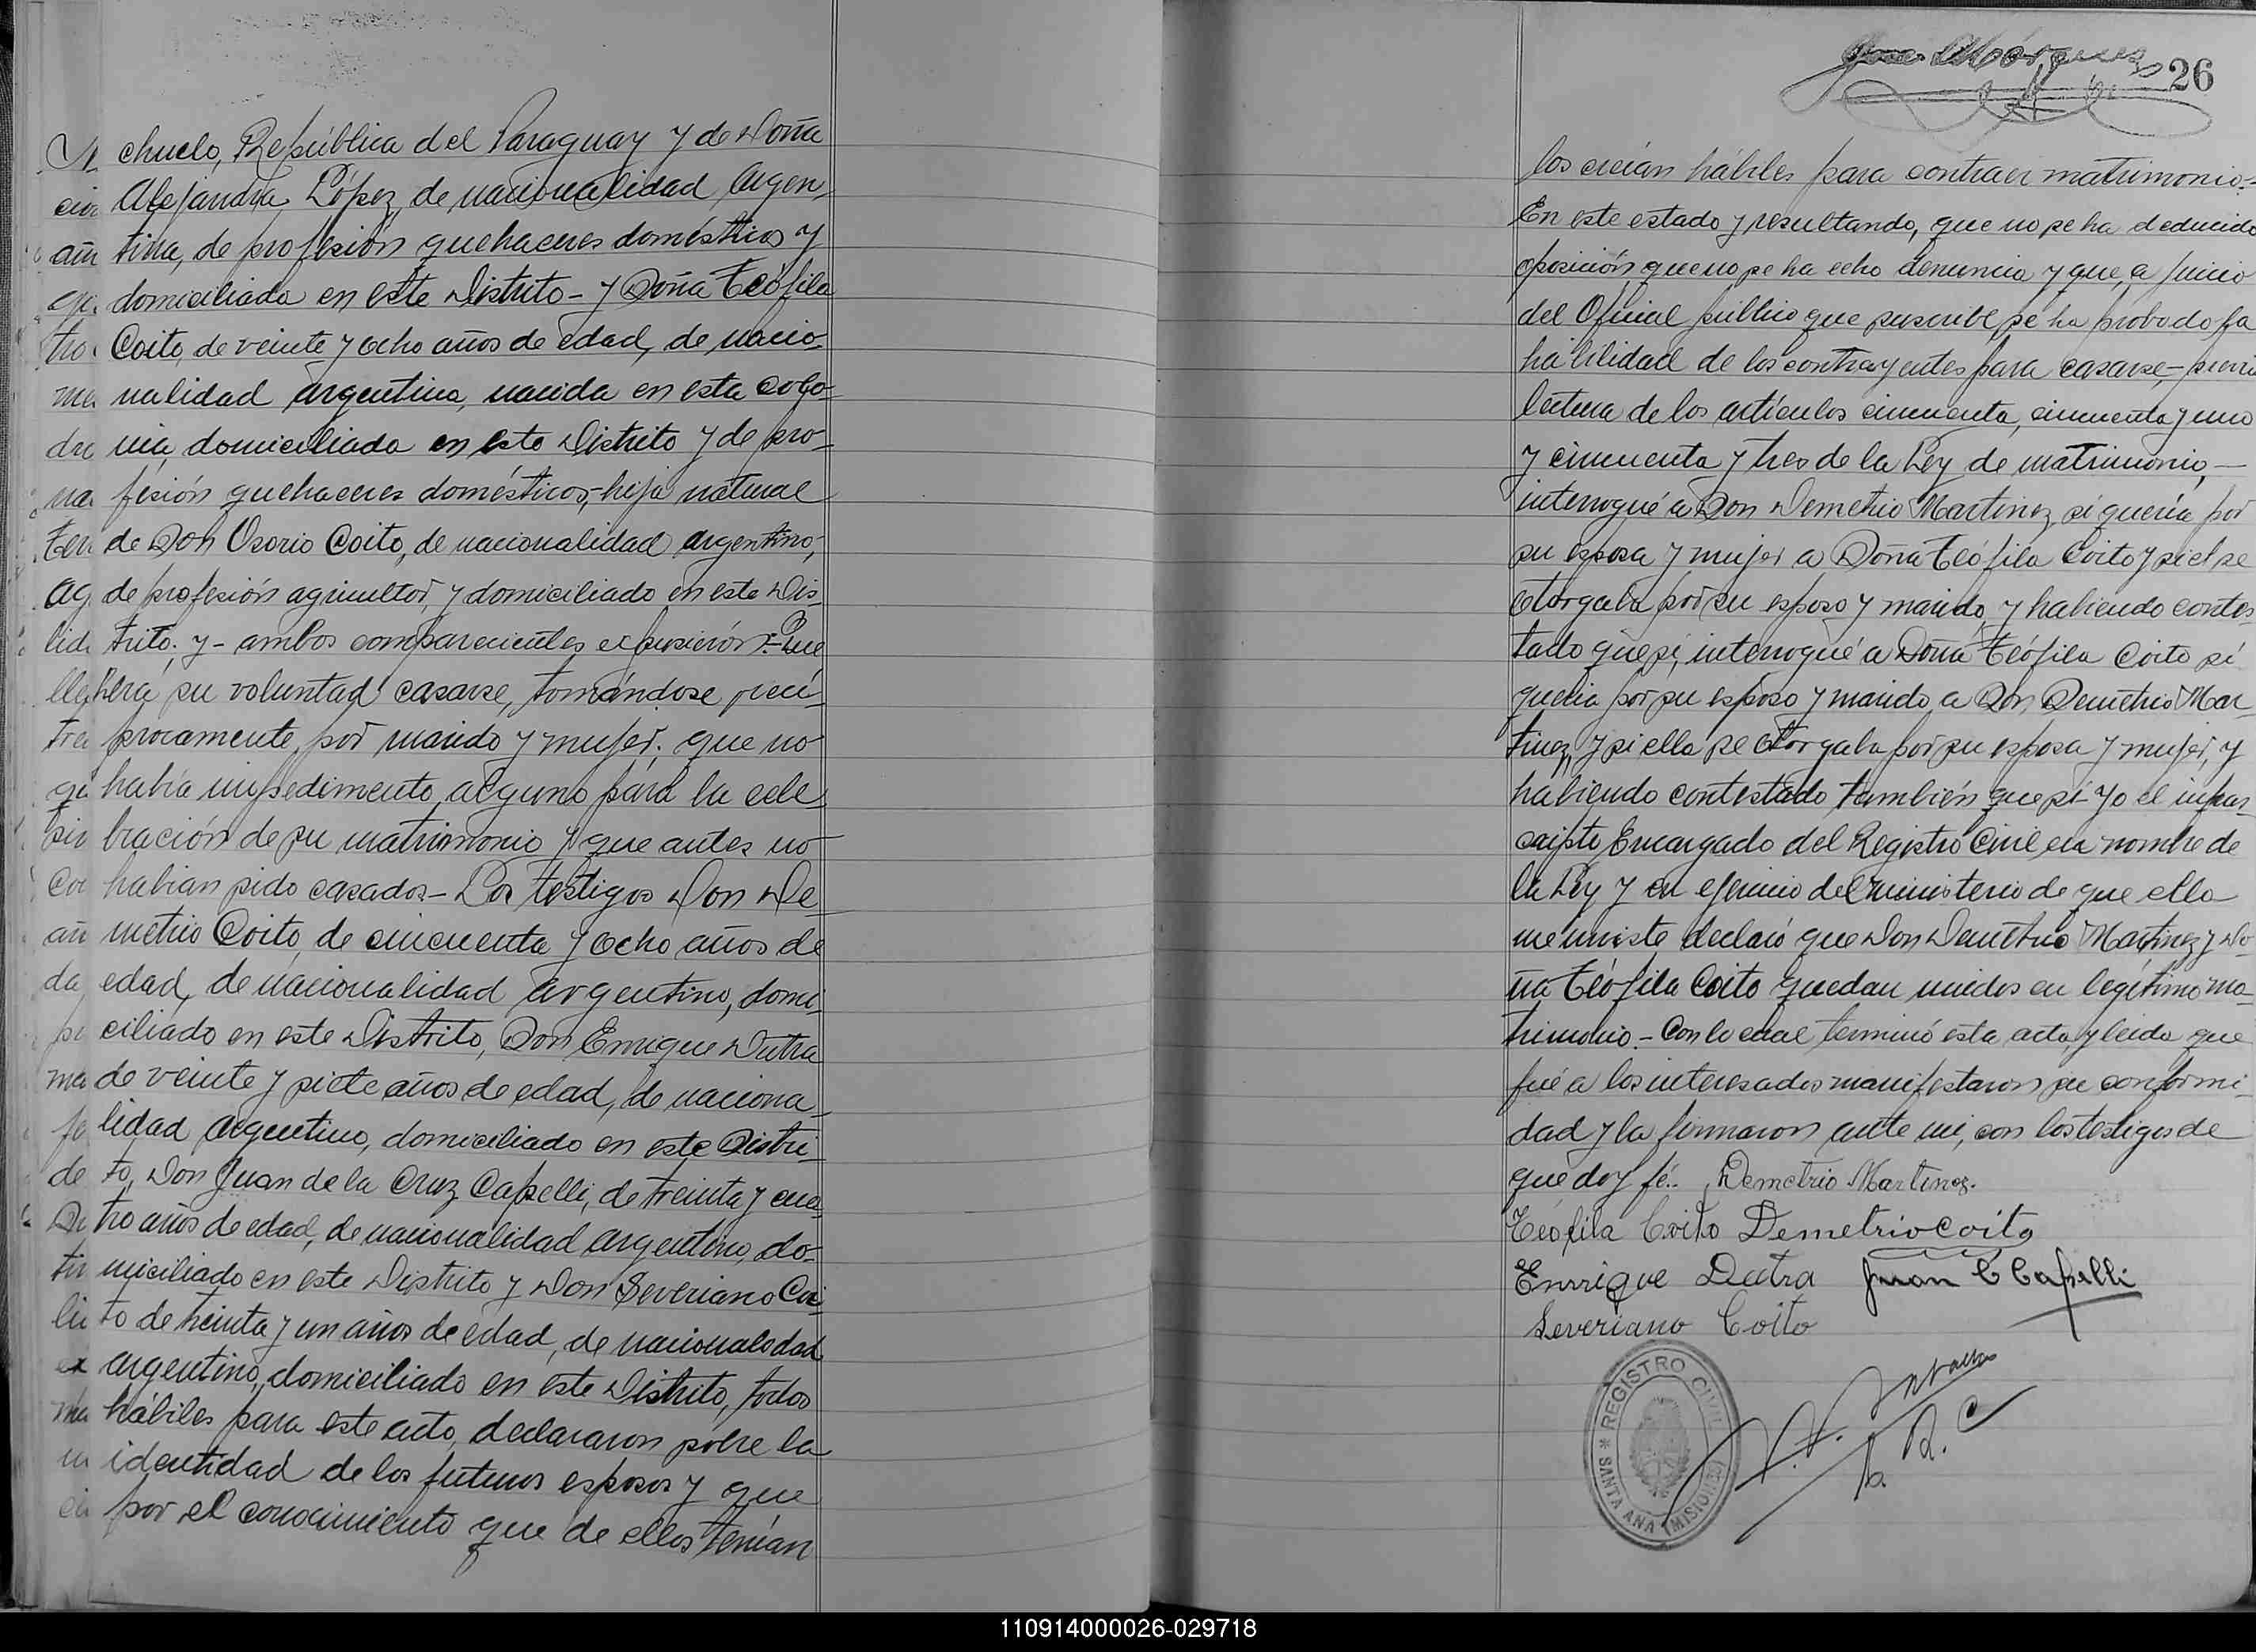 chuelo, República del Paraguay y de Doña
Alejandra López, de nacionalidad Argen-
tina, de profesión quehaceres domésticos y
domiciliada en este Distrito - y Doña Teófila
Coito, de veinte y ocho años de edad, de nacio-
nalidad argentina, nacida en esta colo-
nia, domiciliada en este Distrito y de pro-
fesión quehaceres domésticos, hija natural
de Don Osorio Coito, de nacionalidad argentino,
de profesión agricultor, y domiciliado en este Dis-
trito. y - ambos comparecientes expusieron: Que
era su voluntad casarse, tomándose reci-
procamente por marido y mujer; que no
había impedimento alguno para la cele
bración de su matrimonio y que antes no
habian sido casados - Los testigos Don De-
metrio Coito, de cincuenta y ocho años de
edad, de nacionalidad argentino, domi-
ciliado en este Distrito, Don Enrique Dutra
de veinte y siete años de edad, de naciona-
lidad argentino, domiciliado en este Distri-
to, Don Juan de la Cruz Capelli, de treinta y cua-
tro años de edad, de nacionalidad argentino, do-
miciliado en este Distrito y Don Severiano Coi-
to de treinta y un años de edad, de nacionalidad
argentino, domiciliado en este Distrito, todos
hábiles para este acto, declararon sobre la
identidad de los futuros esposos y que
por el conocimiento que de ellos tenían
26
los creían hábiles para contraer matrimonio.-
En este estado y resultando, que no se ha deducido
oposición, que no se ha echo denuncia y que, a juicio
del Oficial público que suscribe, se ha probado la
habilidad de los contrayentes para casarse,- previa
lectura de los artículos cincuenta, cincuenta y uno
y cincuenta y tres de la Ley de matrimonio,-
interrogué a Don Demetrio Martinez si quería por
su esposa y mujer a Doña Teófila Coito y si el se
otorgaba por su esposo y marido, y habiendo contes
tado que si, interrogué a Doña Teófila Coito si
queria por su esposo y marido a Don Demetrio Mar-
tinez, y si ella se otorgaba por su esposa y mujer, y
habiendo contestado también que si - yo el infras-
cripto Encargado del Registro Civil en nombre de
la Ley y en ejercicio del ministerio de que ella
me inviste declaró que Don Demetrio Martinez y Do-
ña Teófila Coito quedan unidos en legítimo ma-
trimonio.- Con lo cual terminó esta acta, y leida que
fué a los interesados manifestaron su conformi-
dad y la firmaron ante mi, con los testigos de
que doy fé.. Demetrio Martinez.
Teófila Coito Demetrio Coito
Enrrique Dutra Juan C Capelli
Severiano Coito
REGISTRO CIVIL
SANTA ANA (MISIONES)
110914000026-029718